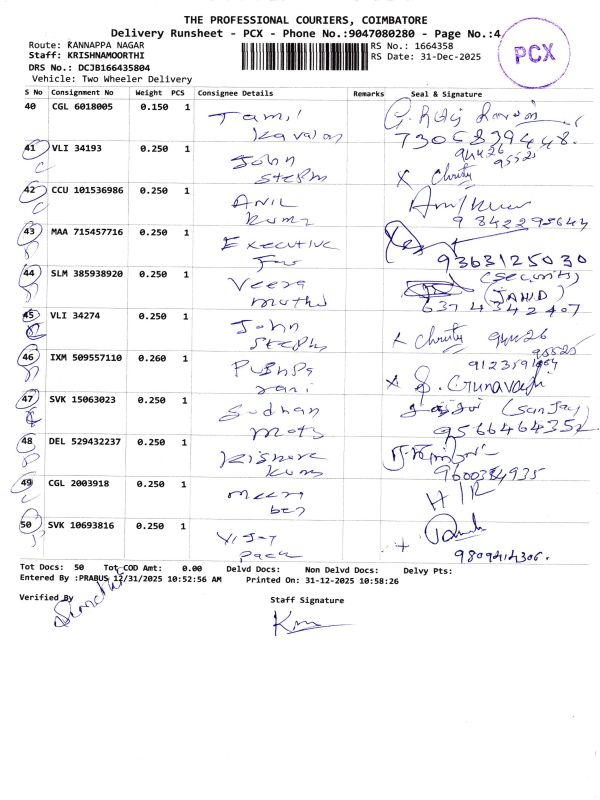 THE PROFESSIONAL COURIERS, COIMBATORE
Delivery Runsheet - PCX - Phone No.:9047080280 - Page No.:4
Route: KANNAPPA NAGAR
RS No.: 1664358
Staff: KRISHNAMOORTHI
RS Date: 31-Dec-2025
DRS No.: DCJB166435804
Vehicle: Two Wheeler Delivery
PCX
S No Consignment No Weight PCS Consignee Details Remarks Seal & Signature
40 CGL 6018005 0.150 1 Tamil
7306839448.
41 VLI 34193 0.250 1 John Stephn x Christy
42 CCU 101536986 0.250 1 Anil Kumr
9842295644
43 MAA 715457716 0.250 1 Executive
9363125030
44 SLM 385938920 0.250 1 Veera muthu (Security)
6374342407
45 VLI 34274 0.250 1 John Stephn x Christy
46 IXM 509557110 0.260 1 Pushpa rani x
47 SVK 15063023 0.250 1 Sudhan mots (Sanjay)
9566464352
48 DEL 529432237 0.250 1 Kishore Kum
9600384935
49 CGL 2003918 0.250 1 meera ben H/R
50 SVK 10693816 0.250 1 Vijay pack
Tot Docs: 50 Tot COD Amt: 0.00 Delvd Docs: Non Delvd Docs: Delvy Pts:
Entered By :PRABUS 12/31/2025 10:52:56 AM Printed On: 31-12-2025 10:58:26
Verified By Staff Signature